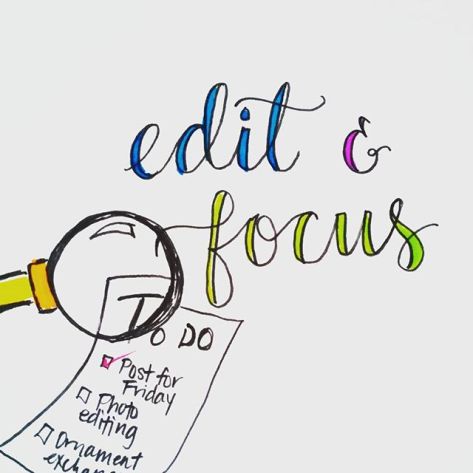 edit &
focus
TO DO
Post for
Friday
Photo
editing
Ornament
exchan